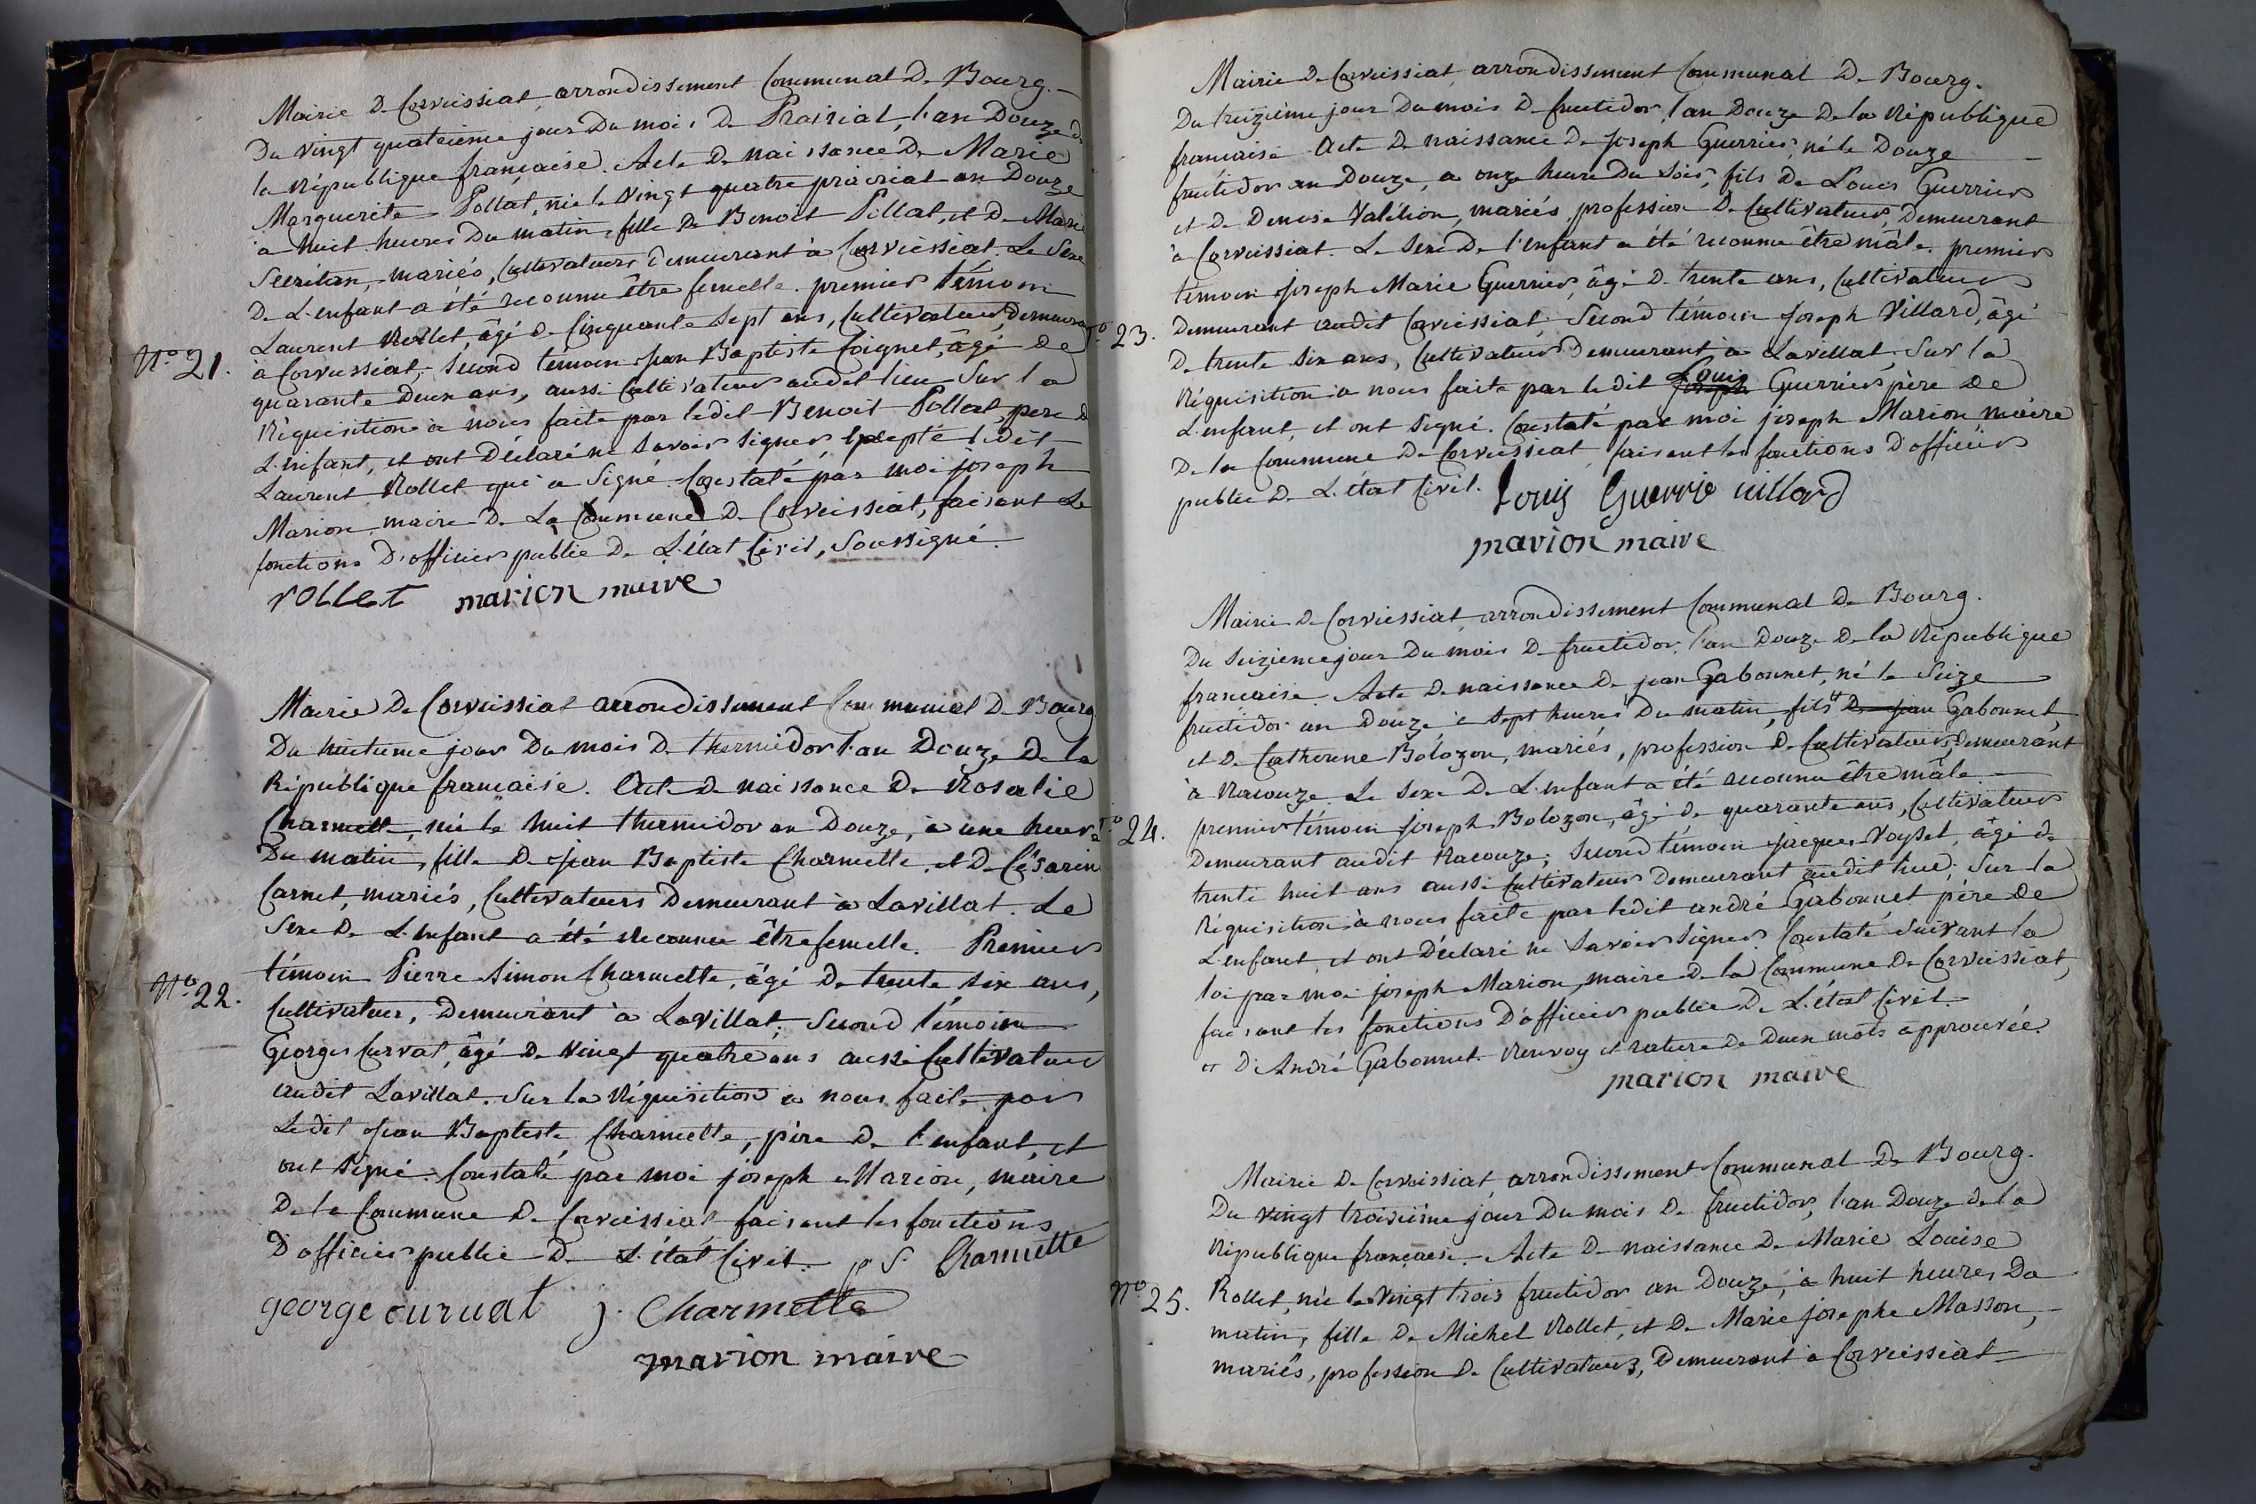 Mairie De Corveissiat arrondissement Communal De Bourg.
Du vingt quatrième jour Du mois De Prairial, l'an Douze de
la République française. Acte De naissance De Marie
Marguerite Pollat, née le vingt quatre prairial an Douze
à huit heures Du matin, fille De Benoit Pollat, et De Marie
Secrétan, mariés, Cultivateurs Demeurant à Corveissiat. Le Sexe
De L'enfant a été reconnu être femelle. premier témoin
N.o 21.
Laurent Rollet, âgé De Cinquante Sept ans, Cultivateur, Demeurant
à Corveissiat; Second témoin Jean Baptiste Coignet, âgé De
quarante Deux ans, aussi Cultivateur audit lieu Sur la
Réquisition à nous faite par ledit Benoit Pollat, père De
L'enfant, et ont Déclaré ne Savoir Signer Excepté ledit
Laurent Rollet qui a Signé. Constaté par moi joseph
Marion maire De La Commune De Corveissiat, faisant Les
fonctions D'officier public De L'état Civil, Soussigné.
rollet marion maire
Mairie De Corveissiat arrondissement Communal De Bourg
Du huitième jour Du mois De thermidor l'an Douze De la
République française. Acte De naissance De Rosalie
Charmette, née le huit thermidor an Douze, à une heure
Du matin, fille De Jean Baptiste Charmette, et De Césarine
Carnet, mariés, Cultivateurs Demeurant à Lavillat. Le
Sexe De L'enfant a été reconnu être femelle. Premier
N.o 22.
témoin Pierre Simon Charmette, âgé De trente six ans,
Cultivateur, Demeurant à Lavillat. Second témoin
Georges Curvat, âgé De vingt quatre ans aussi Cultivateur
audit Lavillat. Sur la Réquisition à nous faite par
Ledit Jean Baptiste Charmette, père De l'enfant, et
ont Signé. Constaté par moi joseph Marion, maire
De la Commune De Corveissiat faisant les fonctions
D'officier public De L'état Civil. p S. Charmette
george curvat j. Charmette
marion maire
Mairie De Corveissiat arrondissement Communal De Bourg.
Du treizième jour Du mois De fructidor, l'an Douze De la République
française Acte De naissance De Joseph Guerrier, né le Douze
fructidor an Douze, à onze heure Du Soir, fils De Louis Guerrier
et De Denise Valélion, mariés, profession De Cultivateurs, Demeurant
à Corveissiat. Le Sexe De l'enfant a été reconnu être mâle. premier
témoin Joseph Marie Guerrier, âgé De trente ans, Cultivateur
N.o 23.
Demeurant audit Corveissiat; Second témoin Joseph Villard, âgé
De trente Six ans, Cultivateur Demeurant à Lavillat; Sur la
Réquisition à nous faite par ledit Louis Guerrier père De
L'enfant, et ont Signé. Constaté par moi joseph Marion maire
De la Commune De Corveissiat, faisant les fonctions D'officier
public De L'état Civil. Louis Guerrie villard
marion maire
Mairie De Corveissiat arrondissement Communal De Bourg.
Du Seizième jour Du mois De fructidor, l'an Douze De la République
française. Acte De naissance De jean Gabonnet, né le Seize
fructidor an Douze à Sept heures Du matin, fils De jean Gabonnet,
et De Catherine Bolozon, mariés, profession De Cultivateurs, Demeurant
à Racouze. Le Sexe De L'enfant a été reconnu être mâle.
N.o 24.
premier témoin joseph Bolozon, âgé De quarante ans, Cultivateur
Demeurant audit Racouze; Second témoin jacques Voysel, âgé De
trente huit ans aussi Cultivateur Demeurant audit lieu; Sur la
Réquisition à nous faite par ledit andré Gabonnet père De
L'enfant, et ont Déclaré ne Savoir Signer. Constaté Suivant la
loi par moi joseph Marion maire De la Commune De Corveissiat,
faisant les fonctions D'officier public De L'état Civil.
D'André Gabonnet. Renvoy et rature De Deux mots approuvée.
marion maire
Mairie De Corveissiat, arrondissement Communal De Bourg.
Du vingt troisième jour Du mois De fructidor, l'an Douze de la
République française. Acte De naissance De Marie Louise
N.o 25.
Rollet, née le vingt trois fructidor an Douze, à huit heures Du
matin, fille De Michel Rollet, et De Marie josephe Masson,
mariés, profession De Cultivateurs, Demeurant à Corveissiat